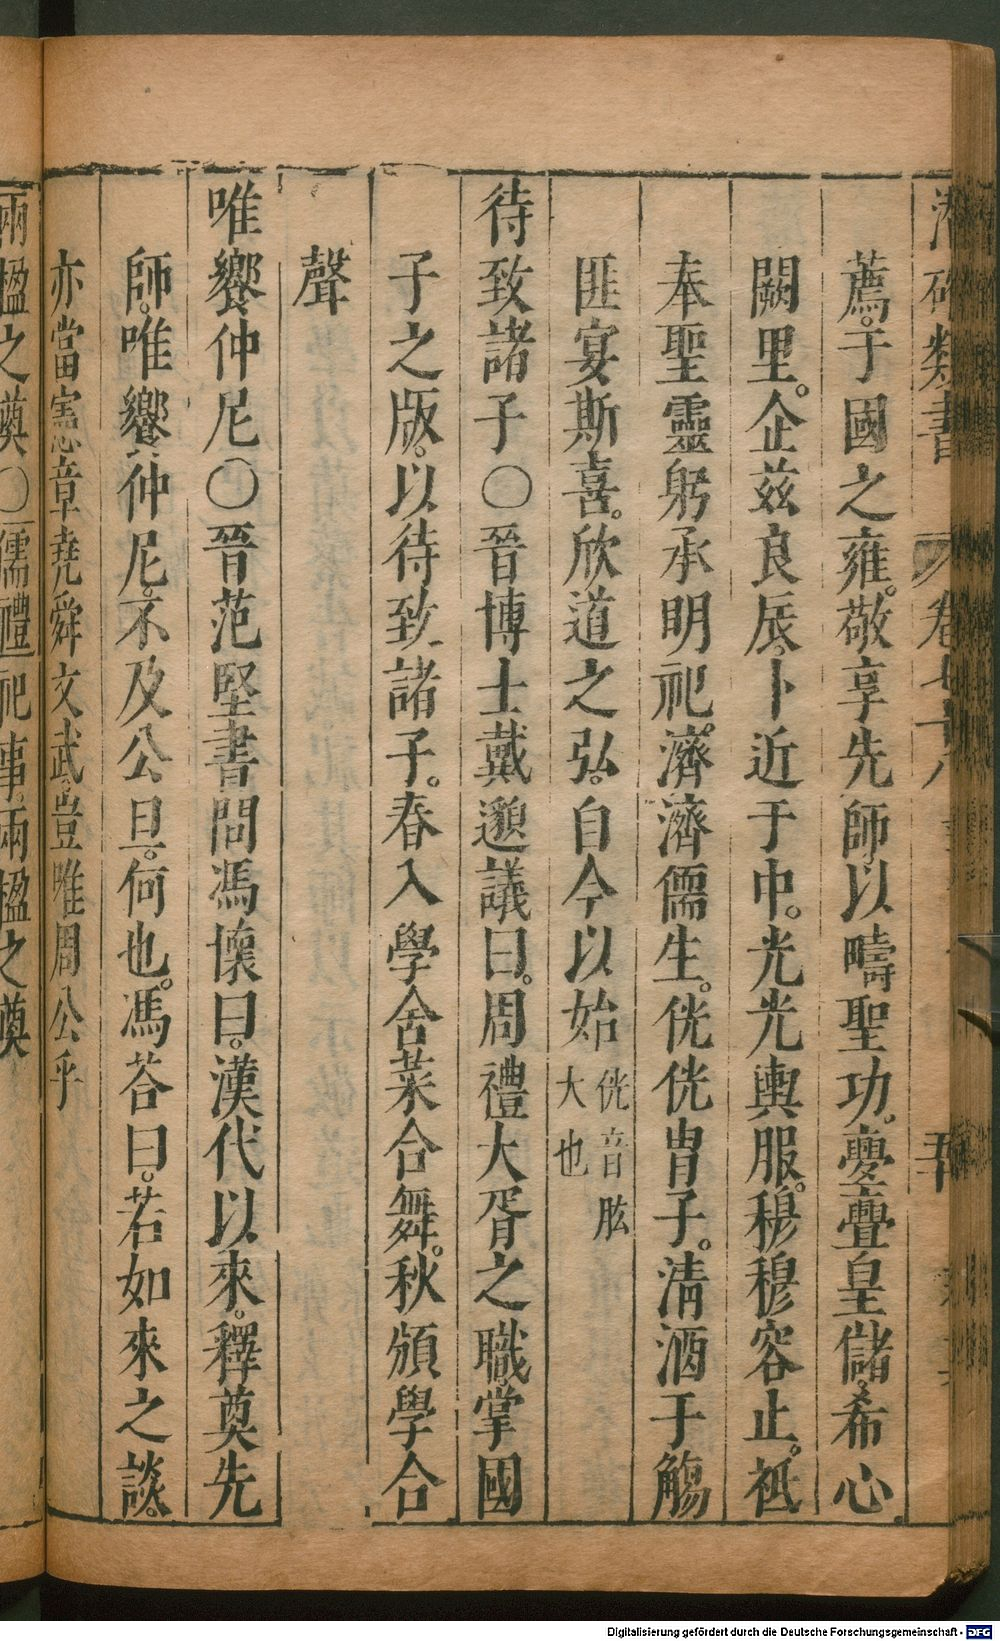 潛確類書 卷七十八
薦。于國之雍。敬享先師。以疇聖功。亹亹皇儲。希心
闕里。企茲良辰。卜近于中。光光輿服。穆穆容止。祗
奉聖靈。躬承明祀。濟濟儒生。侊侊胄子。清酒于觴
匪宴斯喜。欣道之弘。自今以始 侊音胘大也
待致諸子〇晉博士戴邈議曰。周禮大胥之職。掌國
子之版。以待致諸子。春入學舍菜合舞。秋頒學合
聲
唯饗仲尼〇晉范堅書問馮懷曰。漢代以來。釋奠先
師。唯饗仲尼。不及公旦。何也。馮荅曰。若如來之談。
亦當憲章堯舜文武。豈唯周公乎
兩楹之奠〇儒禮祀事。兩楹之奠
Digitalisierung gefördert durch die Deutsche Forschungsgemeinschaft - DFG